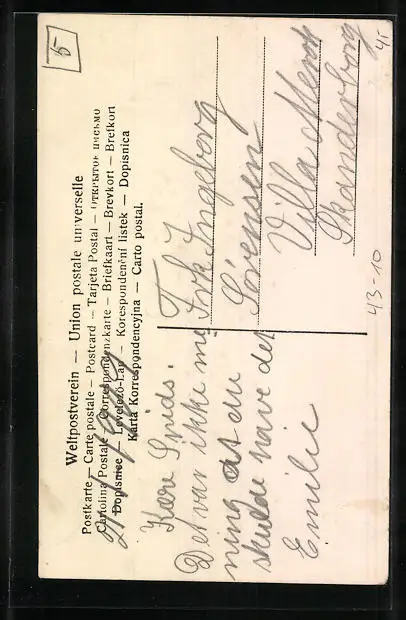 Weltpostverein — Union postale universelle
Postkarte — Carte postale — Postcard — Tarjeta Postal — Открытое письмо
Cartolina Postale — Correspondenzkarte — Briefkaart — Brevkort — Brefkort
Dopisnice — Levelező-Lap — Korespondenční lístek — Dopisnica
Karta Korrespondencyjna — Carto postal.
Kære
Det var ikke me
ning at du
skulde have det
Emilie
Frk Ingeborg
Sörensen
Villa
Skanderborg
5
43-10